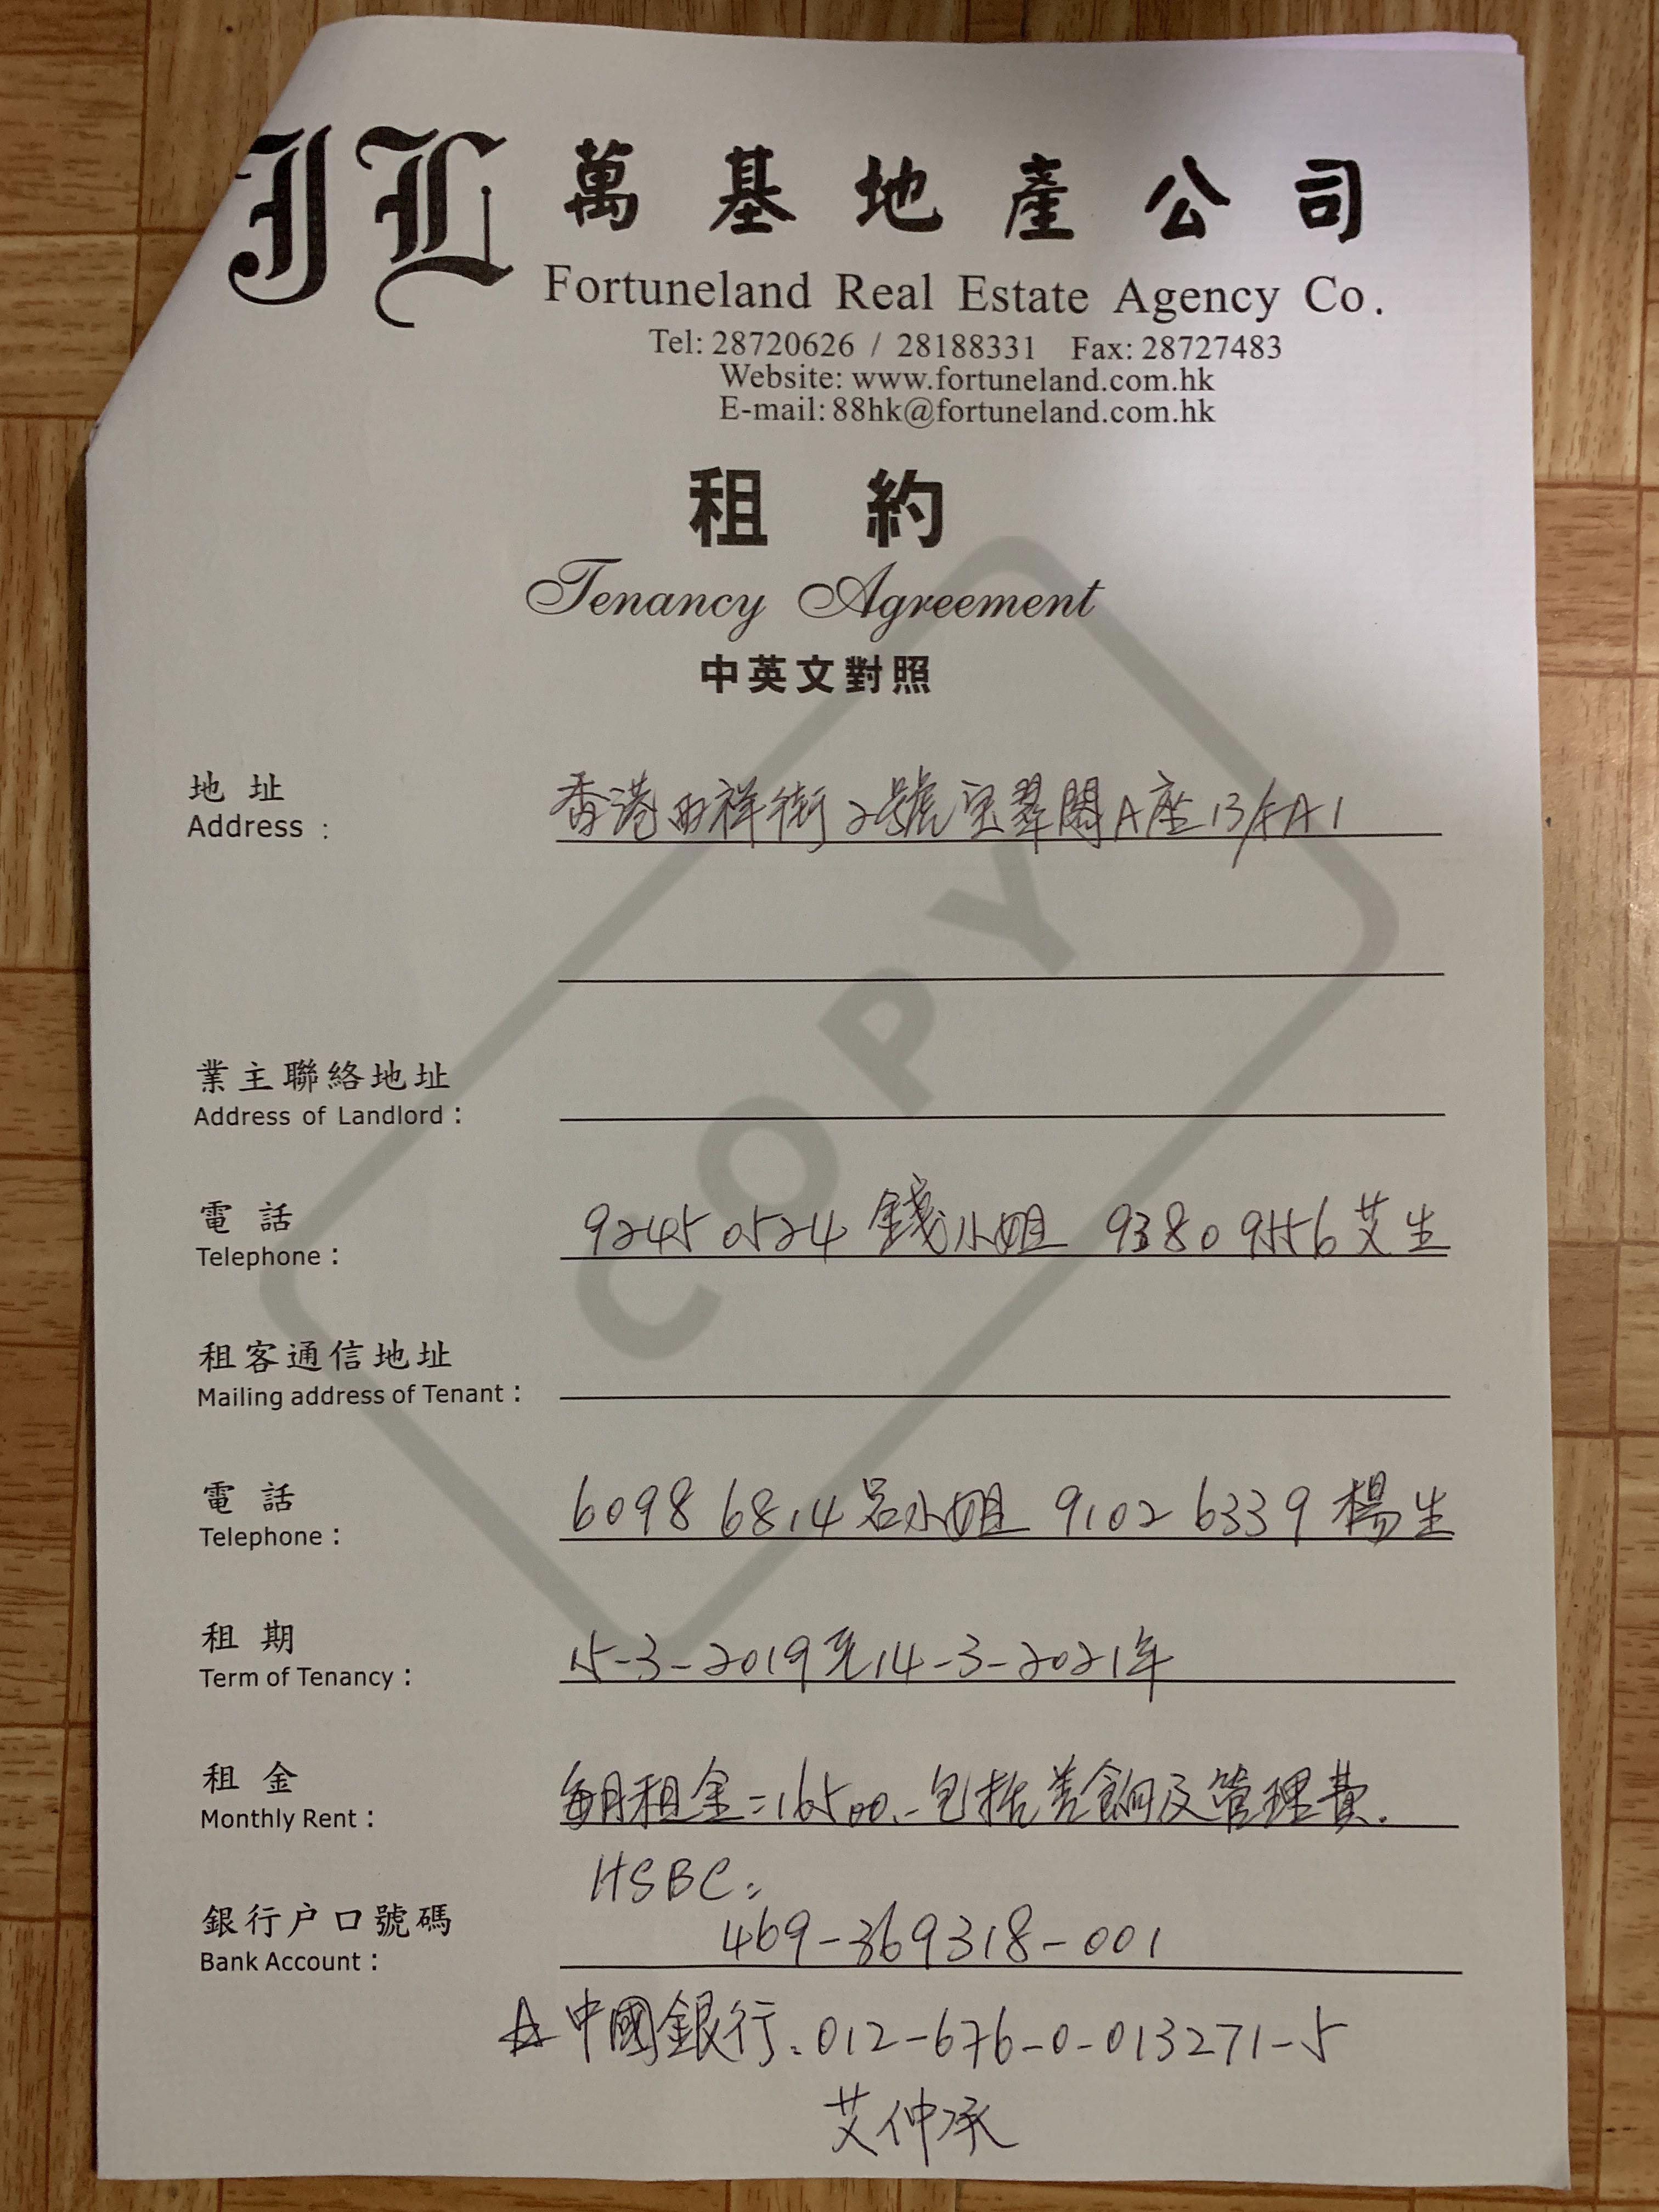 JL 萬基地產公司
Fortuneland Real Estate Agency Co.
Tel: 28720626 / 28188331 Fax: 28727483
Website: www.fortuneland.com.hk
E-mail: 88hk@fortuneland.com.hk
租約
Tenancy Agreement
中英文對照
地址
Address : 香港西祥街2號宝翠閣A座13/FA1
業主聯絡地址
Address of Landlord :
電話
Telephone : 9245 0524 錢小姐 9380 9556 艾生
租客通信地址
Mailing address of Tenant :
電話
Telephone : 6098 6814 呂小姐 9102 6339 楊生
租期
Term of Tenancy : 15-3-2019至14-3-2021年
租金
Monthly Rent : 每月租金=16500.-包括差餉及管理費.
HSBC:
銀行户口號碼
Bank Account : 469-369318-001
☆中國銀行:012-676-0-013271-5
艾仲承
COPY